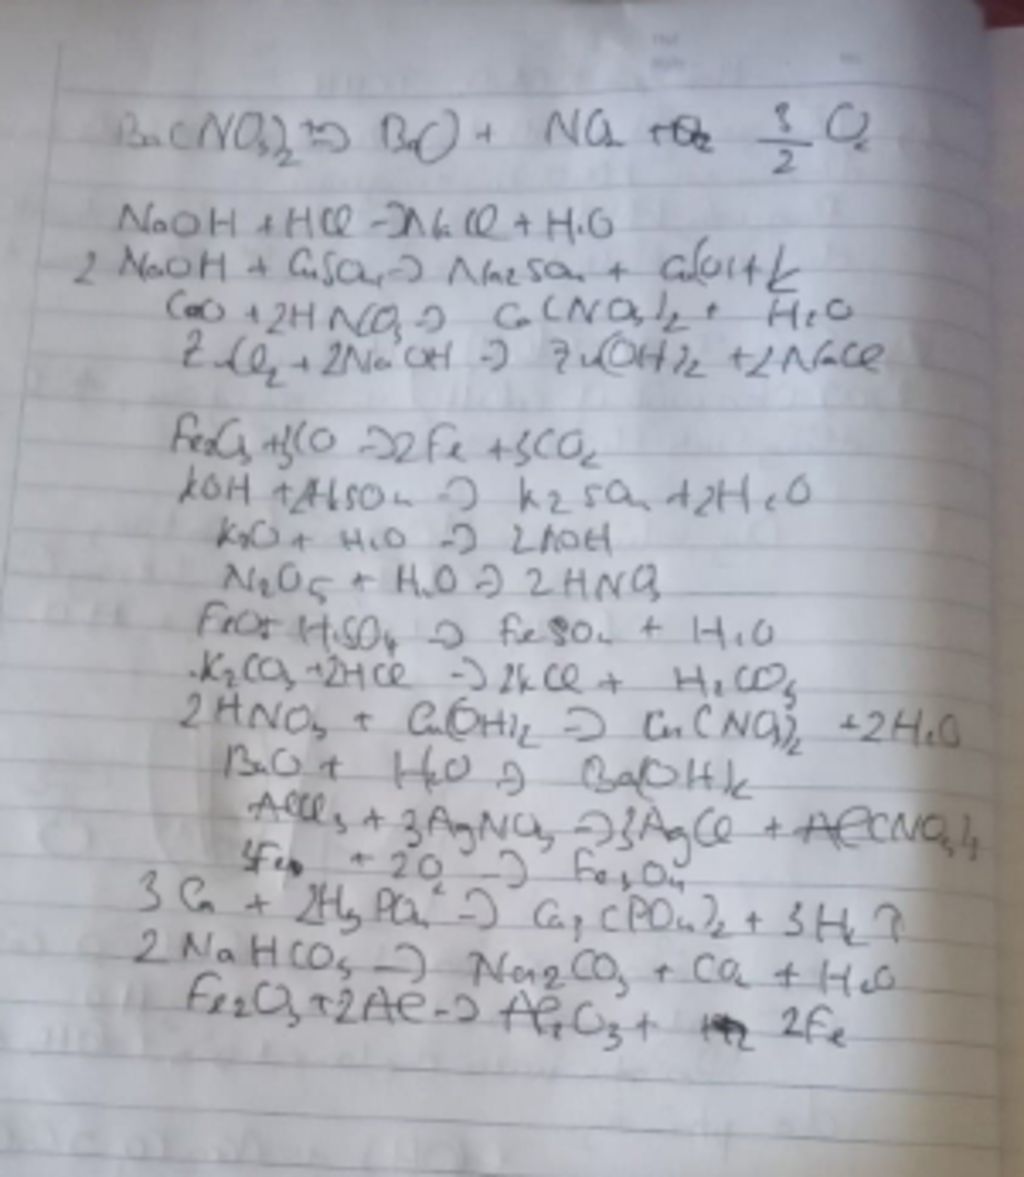 Ba(NO3)2 => BaO + NO2 + O2 3/2 O2
NaOH + HCl -> NaCl + H2O
2 NaOH + CuSO4 -> Na2SO4 + Cu(OH)2
CaO + 2HNO3 -> Ca(NO3)2 + H2O
ZnCl2 + 2NaOH -> Zn(OH)2 + 2NaCl
Fe2O3 + 3CO -> 2Fe + 3CO2
KOH + H2SO4 -> K2SO4 + 2H2O
K2O + H2O -> 2KOH
N2O5 + H2O -> 2HNO3
FeO + H2SO4 -> FeSO4 + H2O
K2CO3 + 2HCl -> 2KCl + H2CO3
2HNO3 + Cu(OH)2 -> Cu(NO3)2 + 2H2O
BaO + H2O -> Ba(OH)2
AlCl3 + 3AgNO3 -> 3AgCl + Al(NO3)3
3Fe + 2O2 -> Fe3O4
3 Ca + 2H3PO4 -> Ca3(PO4)2 + 3H2↑
2 NaHCO3 -> Na2CO3 + CO2 + H2O
Fe2O3 + 2Al -> Al2O3 + 2Fe